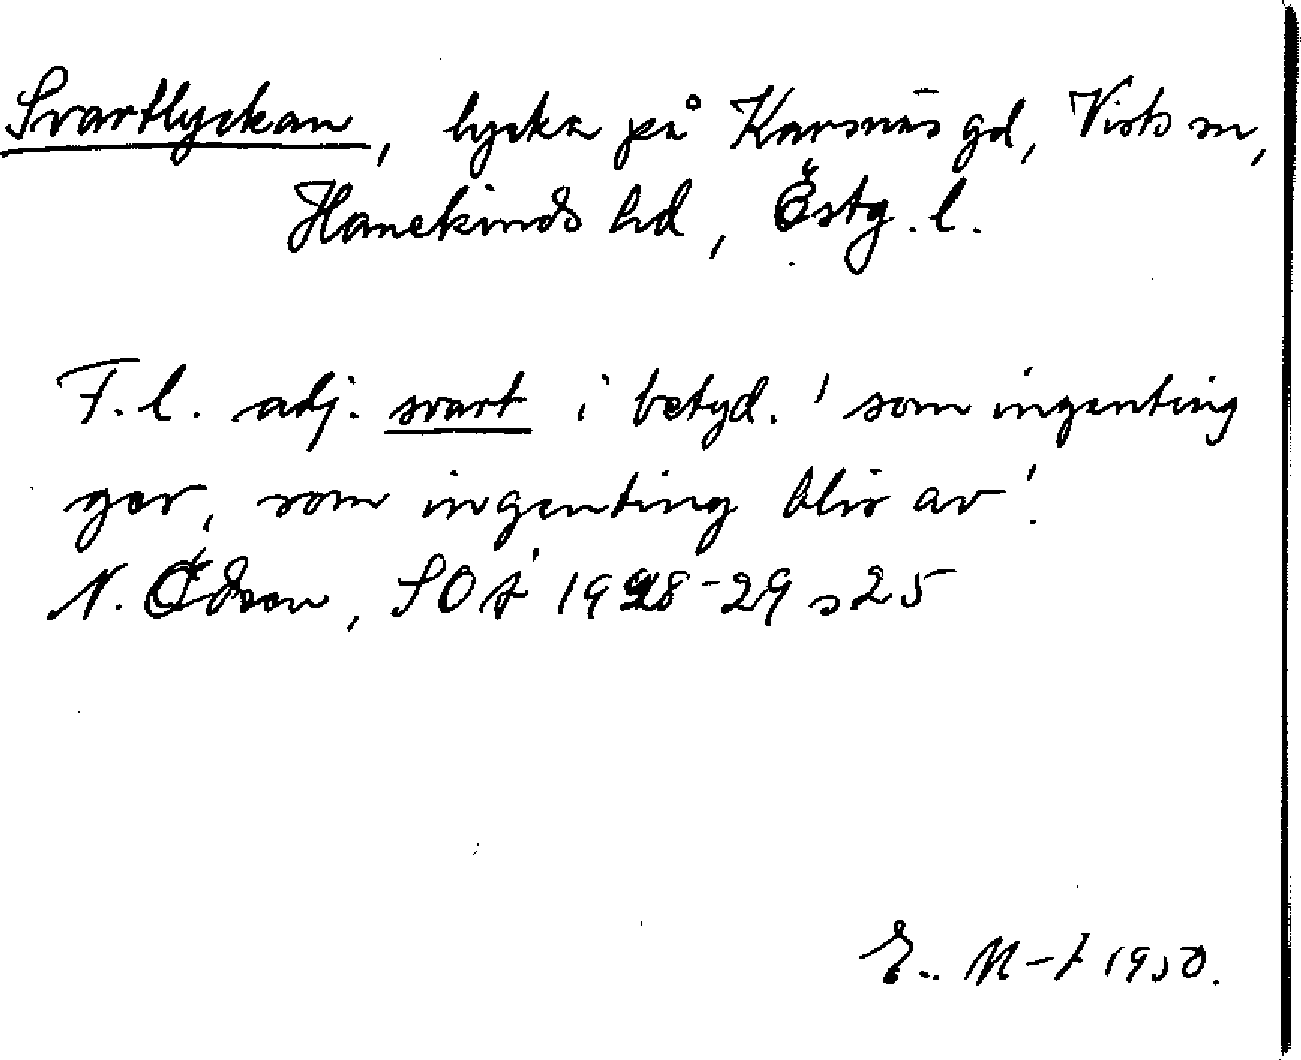 Svartlyckan, lycka på Karsnäs gd, Vists sn,
Hanekinds hd, Östg. l.
F. l. adj. svart i betyd. 'som ingenting
ger, som ingenting blir av'.
N. Ödeen, SOÅ 1928-29 s 25
E. M-t 1950.